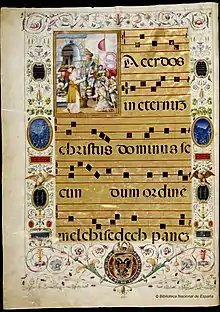 Sacerdos
in eternuz
christus dominus se
cun dum ordine
melchisedech panez
© Biblioteca Nacional de España